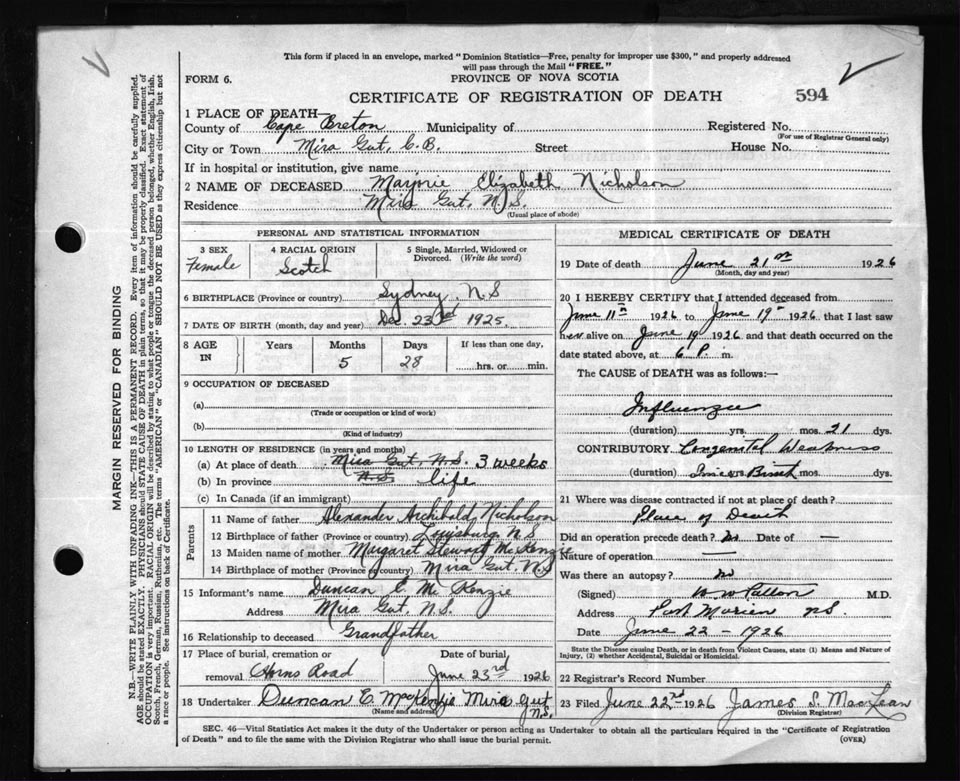 This form if placed in an envelope, marked "Dominion Statistics—Free, penalty for improper use $300," and properly addressed
will pass through the Mail "FREE."
FORM 6.
PROVINCE OF NOVA SCOTIA
CERTIFICATE OF REGISTRATION OF DEATH
594
MARGIN RESERVED FOR BINDING
N.B.—WRITE PLAINLY WITH UNFADING INK—THIS IS A PERMANENT RECORD. Every item of information should be carefully supplied.
AGE should be stated EXACTLY. PHYSICIANS should STATE CAUSE OF DEATH in plain terms, so that it may be properly classified. Exact statement of
OCCUPATION is very important. RACIAL ORIGIN will be described by stating to what people or tongue the deceased person belonged, whether English, Irish,
Scotch, French, German, Russian, Ruthenian, etc. The terms "AMERICAN" or "CANADIAN" SHOULD NOT BE USED as they express citizenship but not
a race or people. See instructions on back of Certificate.
1 PLACE OF DEATH—
County of Cape Breton Municipality of Registered No.
(For use of Registrar General only)
City or Town Mira Gut, C.B. Street House No.
If in hospital or institution, give name
2 NAME OF DECEASED Marjorie Elizabeth Nicholson
Residence Mira Gut, N.S.
(Usual place of abode)
PERSONAL AND STATISTICAL INFORMATION
3 SEX
Female
4 RACIAL ORIGIN
Scotch
5 Single, Married, Widowed or
Divorced. (Write the word)
6 BIRTHPLACE (Province or country) Sydney, N.S
7 DATE OF BIRTH (month, day and year) Dec. 23rd 1925.
8 AGE
IN
Years
Months
5
Days
28
If less than one day,
hrs. or min.
9 OCCUPATION OF DECEASED
(a)
(Trade or occupation or kind of work)
(b)
(Kind of industry)
10 LENGTH OF RESIDENCE (in years and months)
(a) At place of death Mira Gut, N.S. 3 weeks
(b) In province N.S. life
(c) In Canada (if an immigrant)
Parents
11 Name of father Alexander Archibald Nicholson
12 Birthplace of father (Province or country) Louisburg N.S
13 Maiden name of mother Margaret Stewart McKenzie
14 Birthplace of mother (Province or country) Mira Gut, N.S
15 Informant's name Duncan E. McKenzie
Address Mira Gut, N.S.
16 Relationship to deceased Grandfather
17 Place of burial, cremation or
removal Horns Road
Date of burial
June 23rd 1926
18 Undertaker Duncan E MacKenzie Mira gut
N.S.
(Name and address)
MEDICAL CERTIFICATE OF DEATH
19 Date of death June 21st 1926
(Month, day and year)
20 I HEREBY CERTIFY that I attended deceased from
June 11th 1926 to June 19th 1926 that I last saw
her alive on June 19 1926 and that death occurred on the
date stated above, at 6 P. m.
The CAUSE of DEATH was as follows:—
Influenza
(duration) yrs. mos. 21 dys.
CONTRIBUTORY Congenital Weakness
(duration) Since Birth mos. dys.
21 Where was disease contracted if not at place of death?
Place of Death
Did an operation precede death? No Date of —
Nature of operation —
Was there an autopsy? no
(Signed) W W Patton M.D.
Address Port Morien N.S.
Date June 22 - 1926
State the Disease causing Death, or in death from Violent Causes, state (1) Means and Nature of
Injury, (2) whether Accidental, Suicidal or Homicidal.
22 Registrar's Record Number
23 Filed June 22nd 1926 James S. MacLean
(Division Registrar)
SEC. 46—Vital Statistics Act makes it the duty of the Undertaker or person acting as Undertaker to obtain all the particulars required in the "Certificate of Registration
of Death" and to file the same with the Division Registrar who shall issue the burial permit.
(OVER)